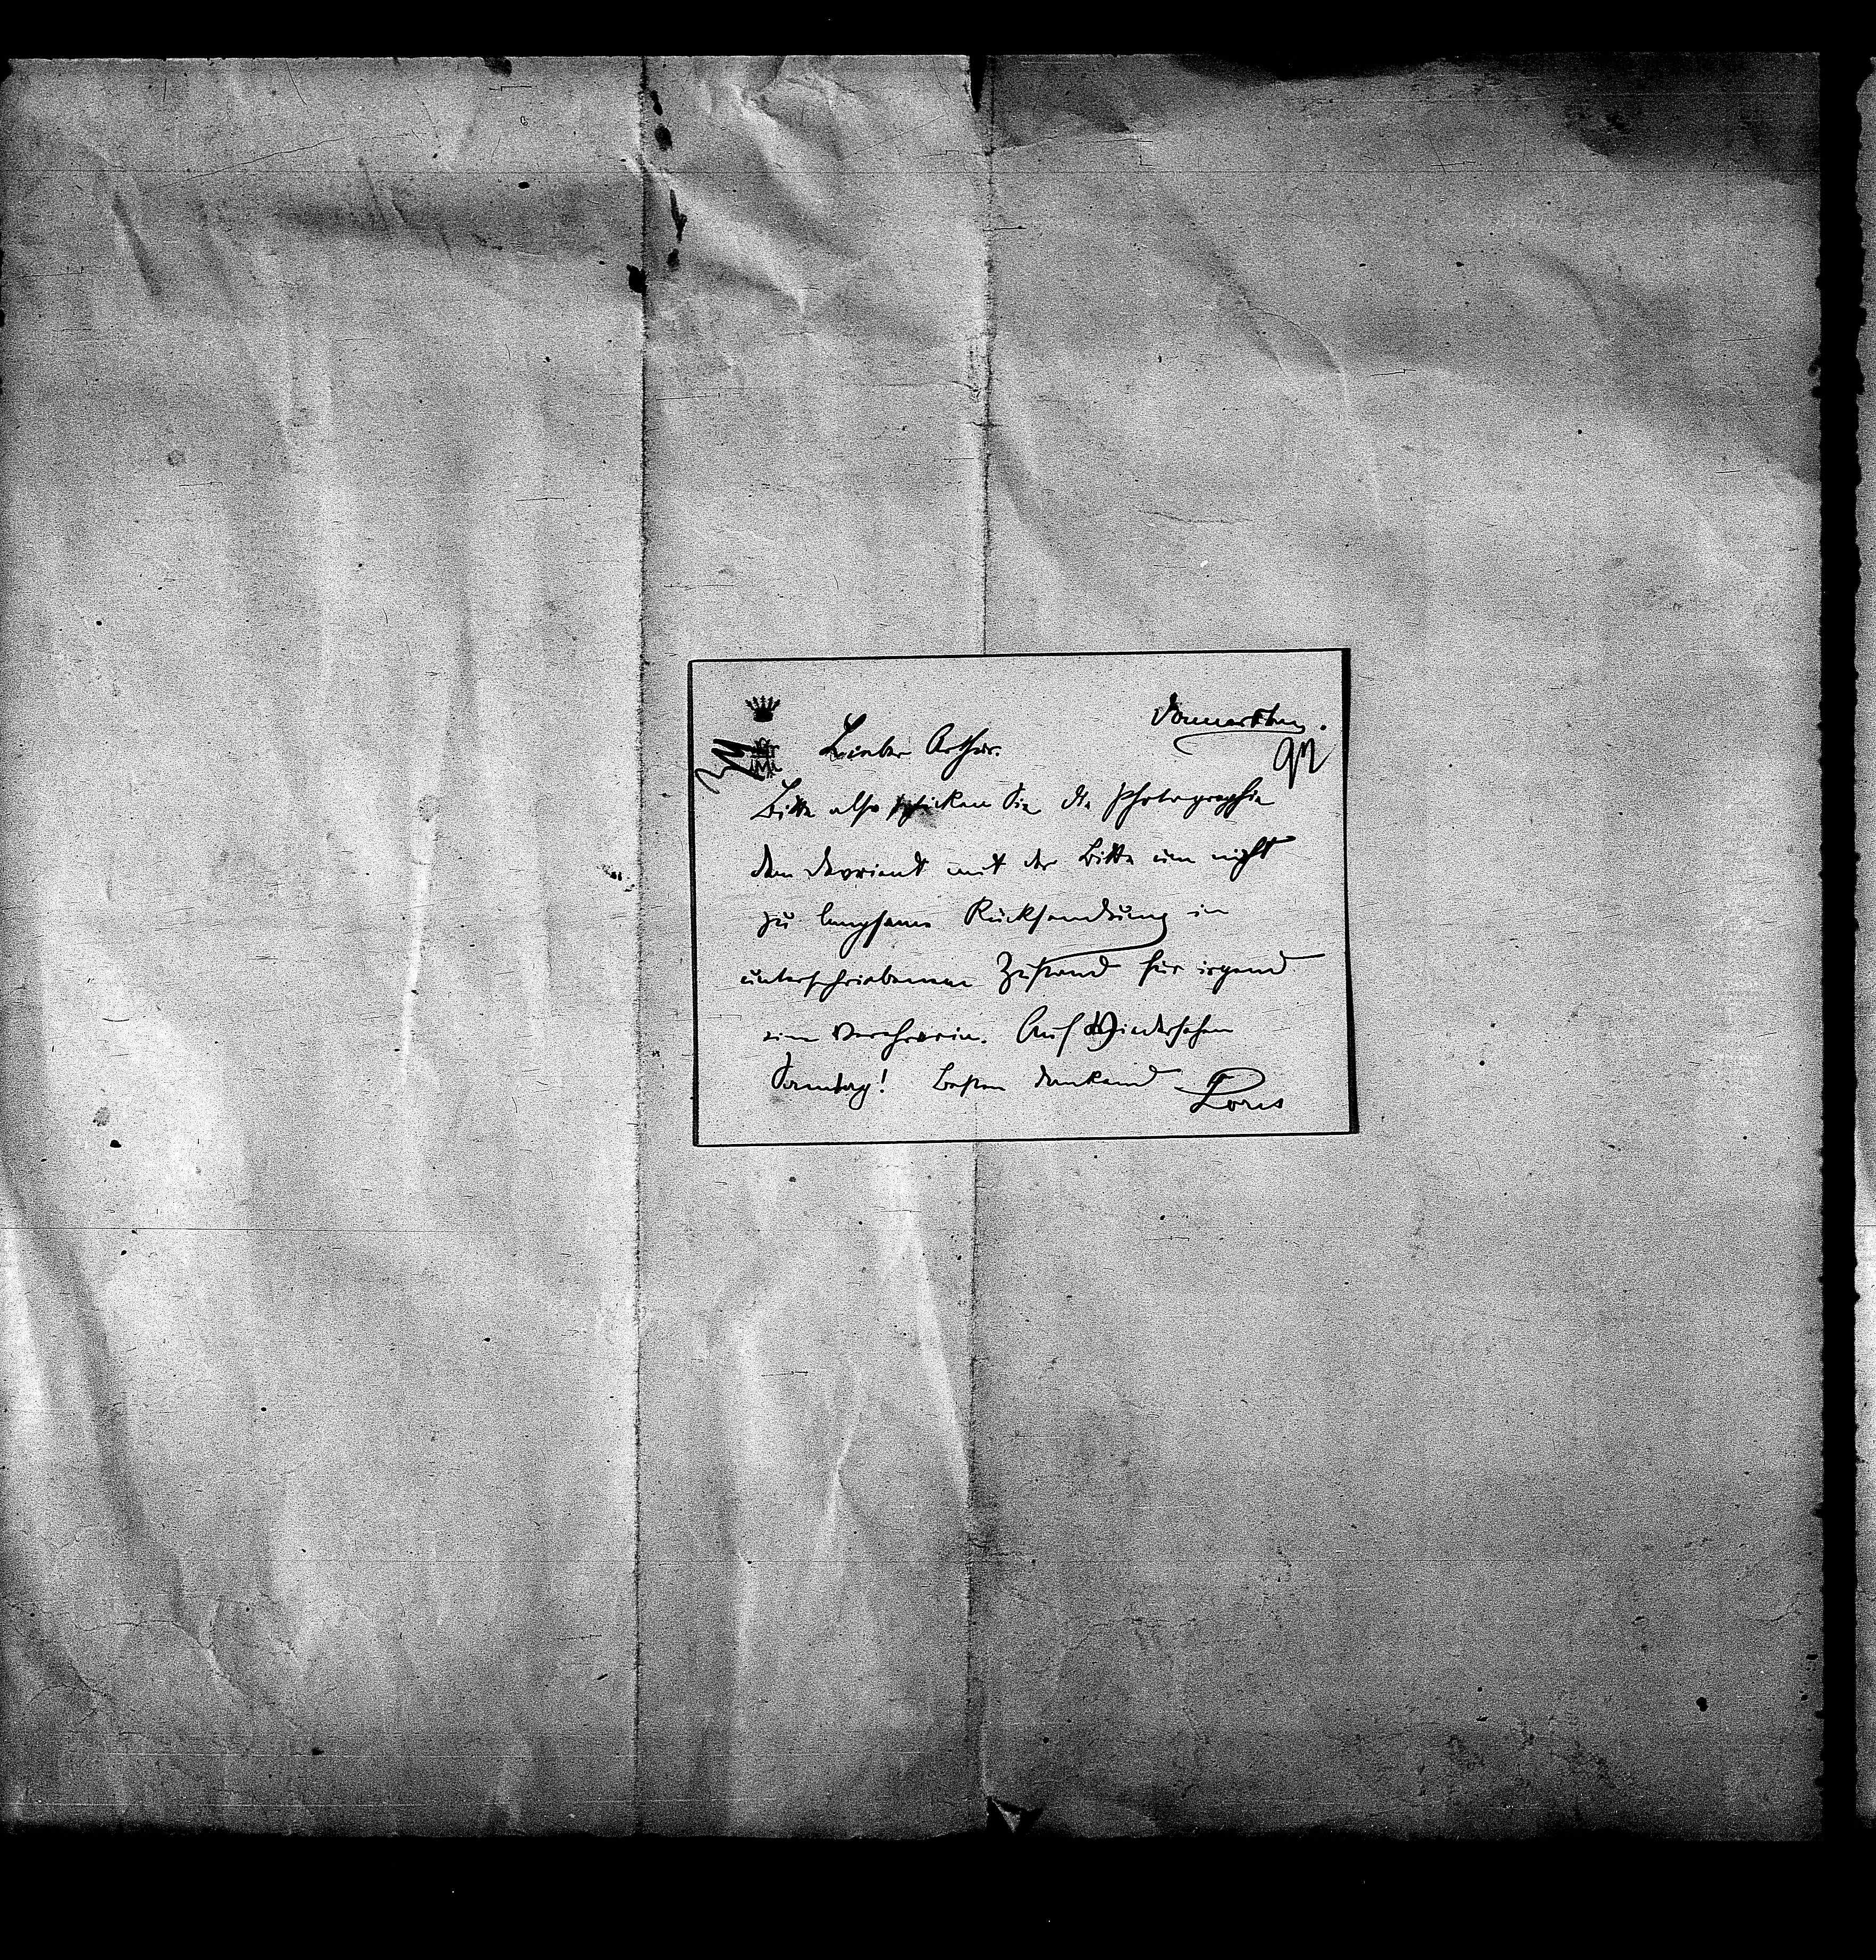 Donnerstag.
92
Lieber Arthur.
Bitte also schicken Sie die Photographie
dem Devrient mit der Bitte um nicht
zu langsame Rücksendung in
unterschriebenem Zustand für irgend
eine Verehrerin. Auf Wiedersehen
Sonntag! Bestens dankend
Loris